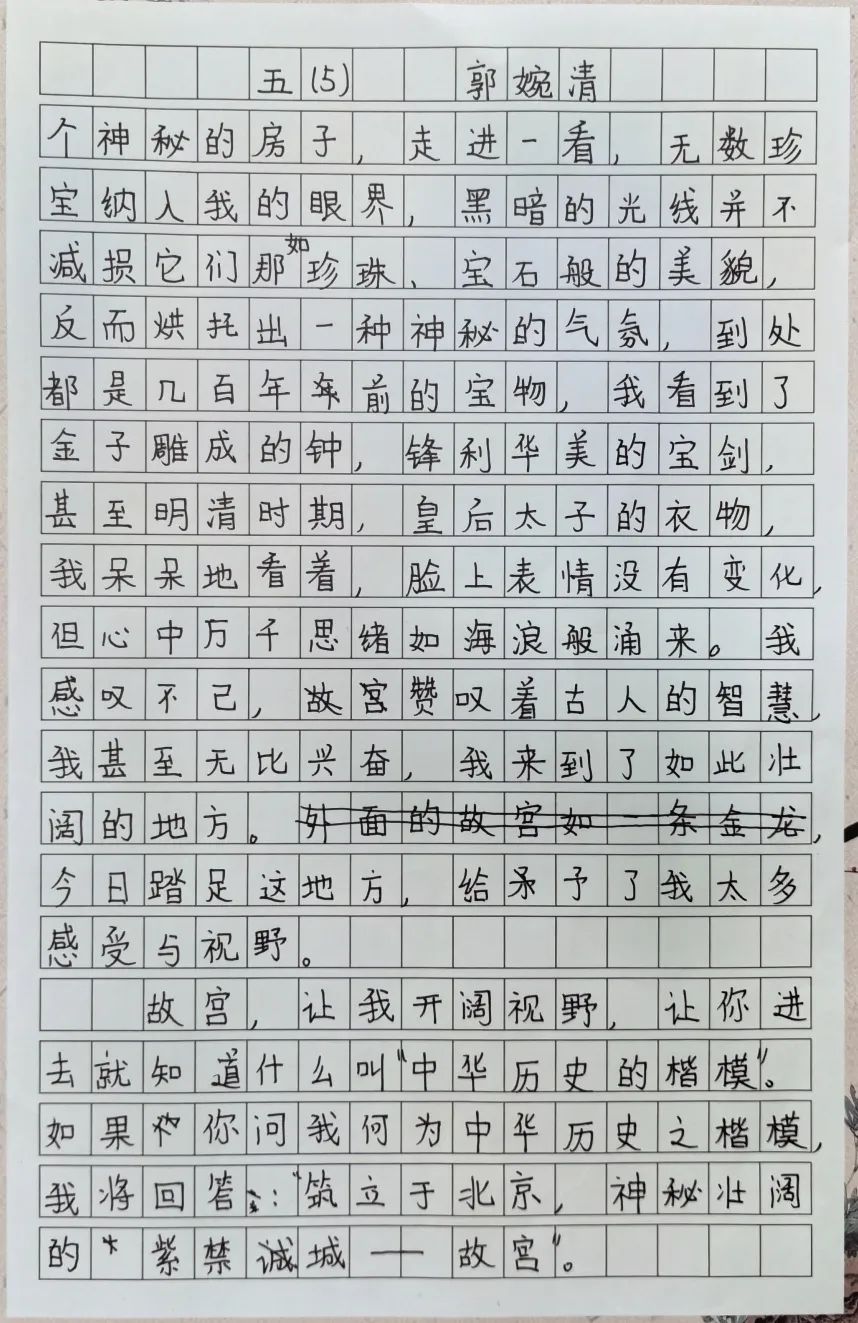 五(5) 郭婉清
个神秘的房子，走进一看，无数珍
宝纳入我的眼界，黑暗的光线并不
减损它们那如珍珠、宝石般的美貌，
反而烘托出一种神秘的气氛，到处
都是几百年前的宝物，我看到了
金子雕成的钟，锋利华美的宝剑，
甚至明清时期，皇后太子的衣物，
我呆呆地看着，脸上表情没有变化，
但心中万千思绪如海浪般涌来。我
感叹不已，故宫赞叹着古人的智慧，
我甚至无比兴奋，我来到了如此壮
阔的地方。外面的故宫如一条金龙，
今日踏足这地方，给予了我太多
感受与视野。
故宫，让我开阔视野，让你进
去就知道什么叫“中华历史的楷模”。
如果你问我何为中华历史之楷模，
我将回答：“筑立于北京，神秘壮阔
的紫禁城——故宫”。